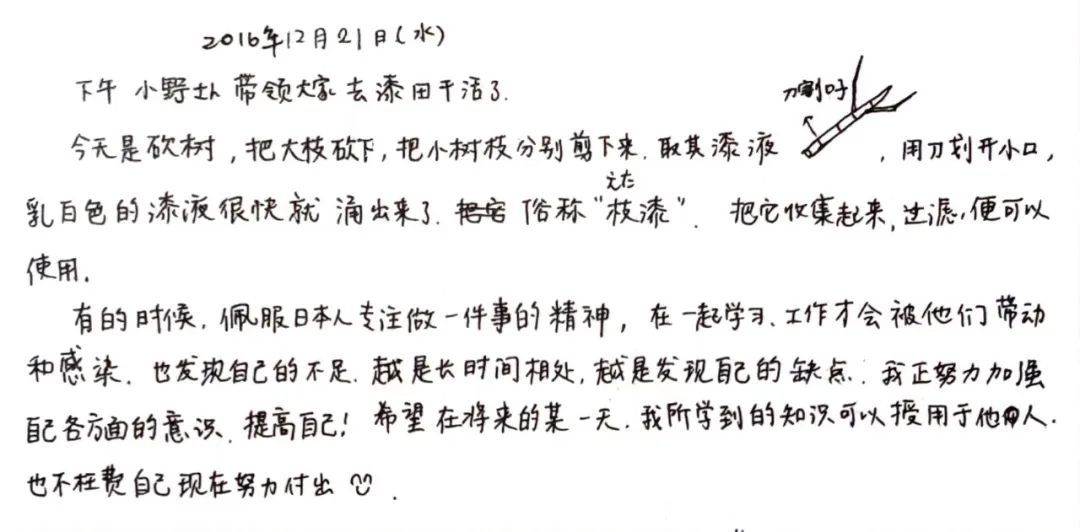 2016年12月21日(水)
下午 小野さん 带领大家去漆田干活了.
刀割口子
今天是砍树，把大枝砍下，把小树枝分别剪下来. 取其漆液 ，用刀划开小口，
えだ
乳白色的漆液很快就 涌出来了. 把它 俗称“枝漆”. 把它收集起来,过滤,便可以
使用.
有的时候. 佩服日本人专注做一件事的精神，在一起学习、工作才会被他们带动
和感染. 也发现自己的不足. 越是长时间相处,越是发现自己的缺点. 我正努力加强
自己各方面的意识、提高自己! 希望在将来的某一天. 我所学到的知识可以授用于他人.
也不枉费自己现在努力付出 ☺.